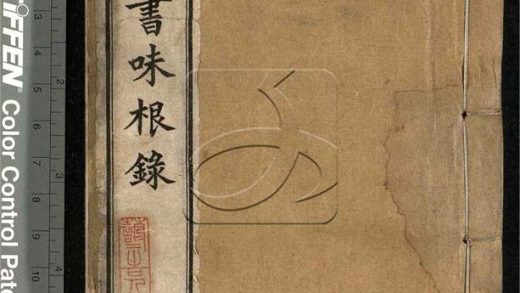 書味根錄
IFFEN
Color Control Patc
2
3
4
5
6
7
8
9
10